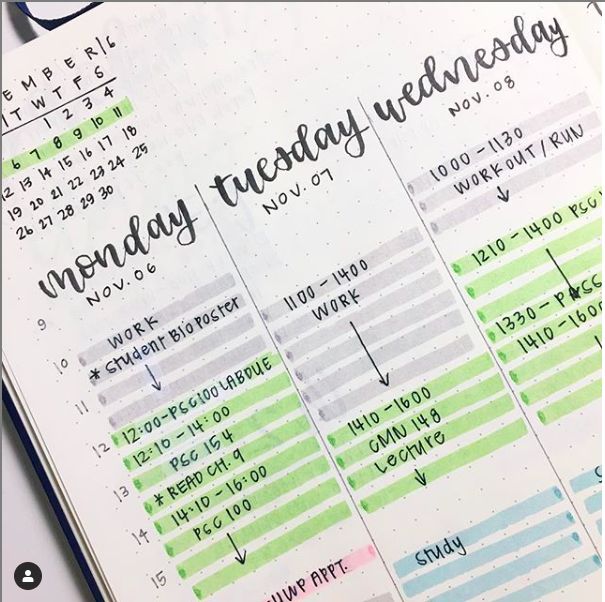 EMBER/6
T W T F S
1 2 3 4
6 7 8 9 10 11
12 13 14 15 16 17 18
19 20 21 22 23 24 25
26 27 28 29 30
monday
NOV. 06
9
10
11
12
13
14
15
WORK
* STUDENT BIO POSTER
12:00-PSC100 LAB DUE
12:10-14:00
PSC 154
* READ CH. 9
14:10-16:00
PSC 100
APPT.
tuesday
NOV. 07
1100-1400
WORK
1410-1600
CMN 148
Lecture
study
wednesday
NOV. 08
1000-1130
WORKOUT/RUN
1210-1400 PSC
1330-
1410-1600